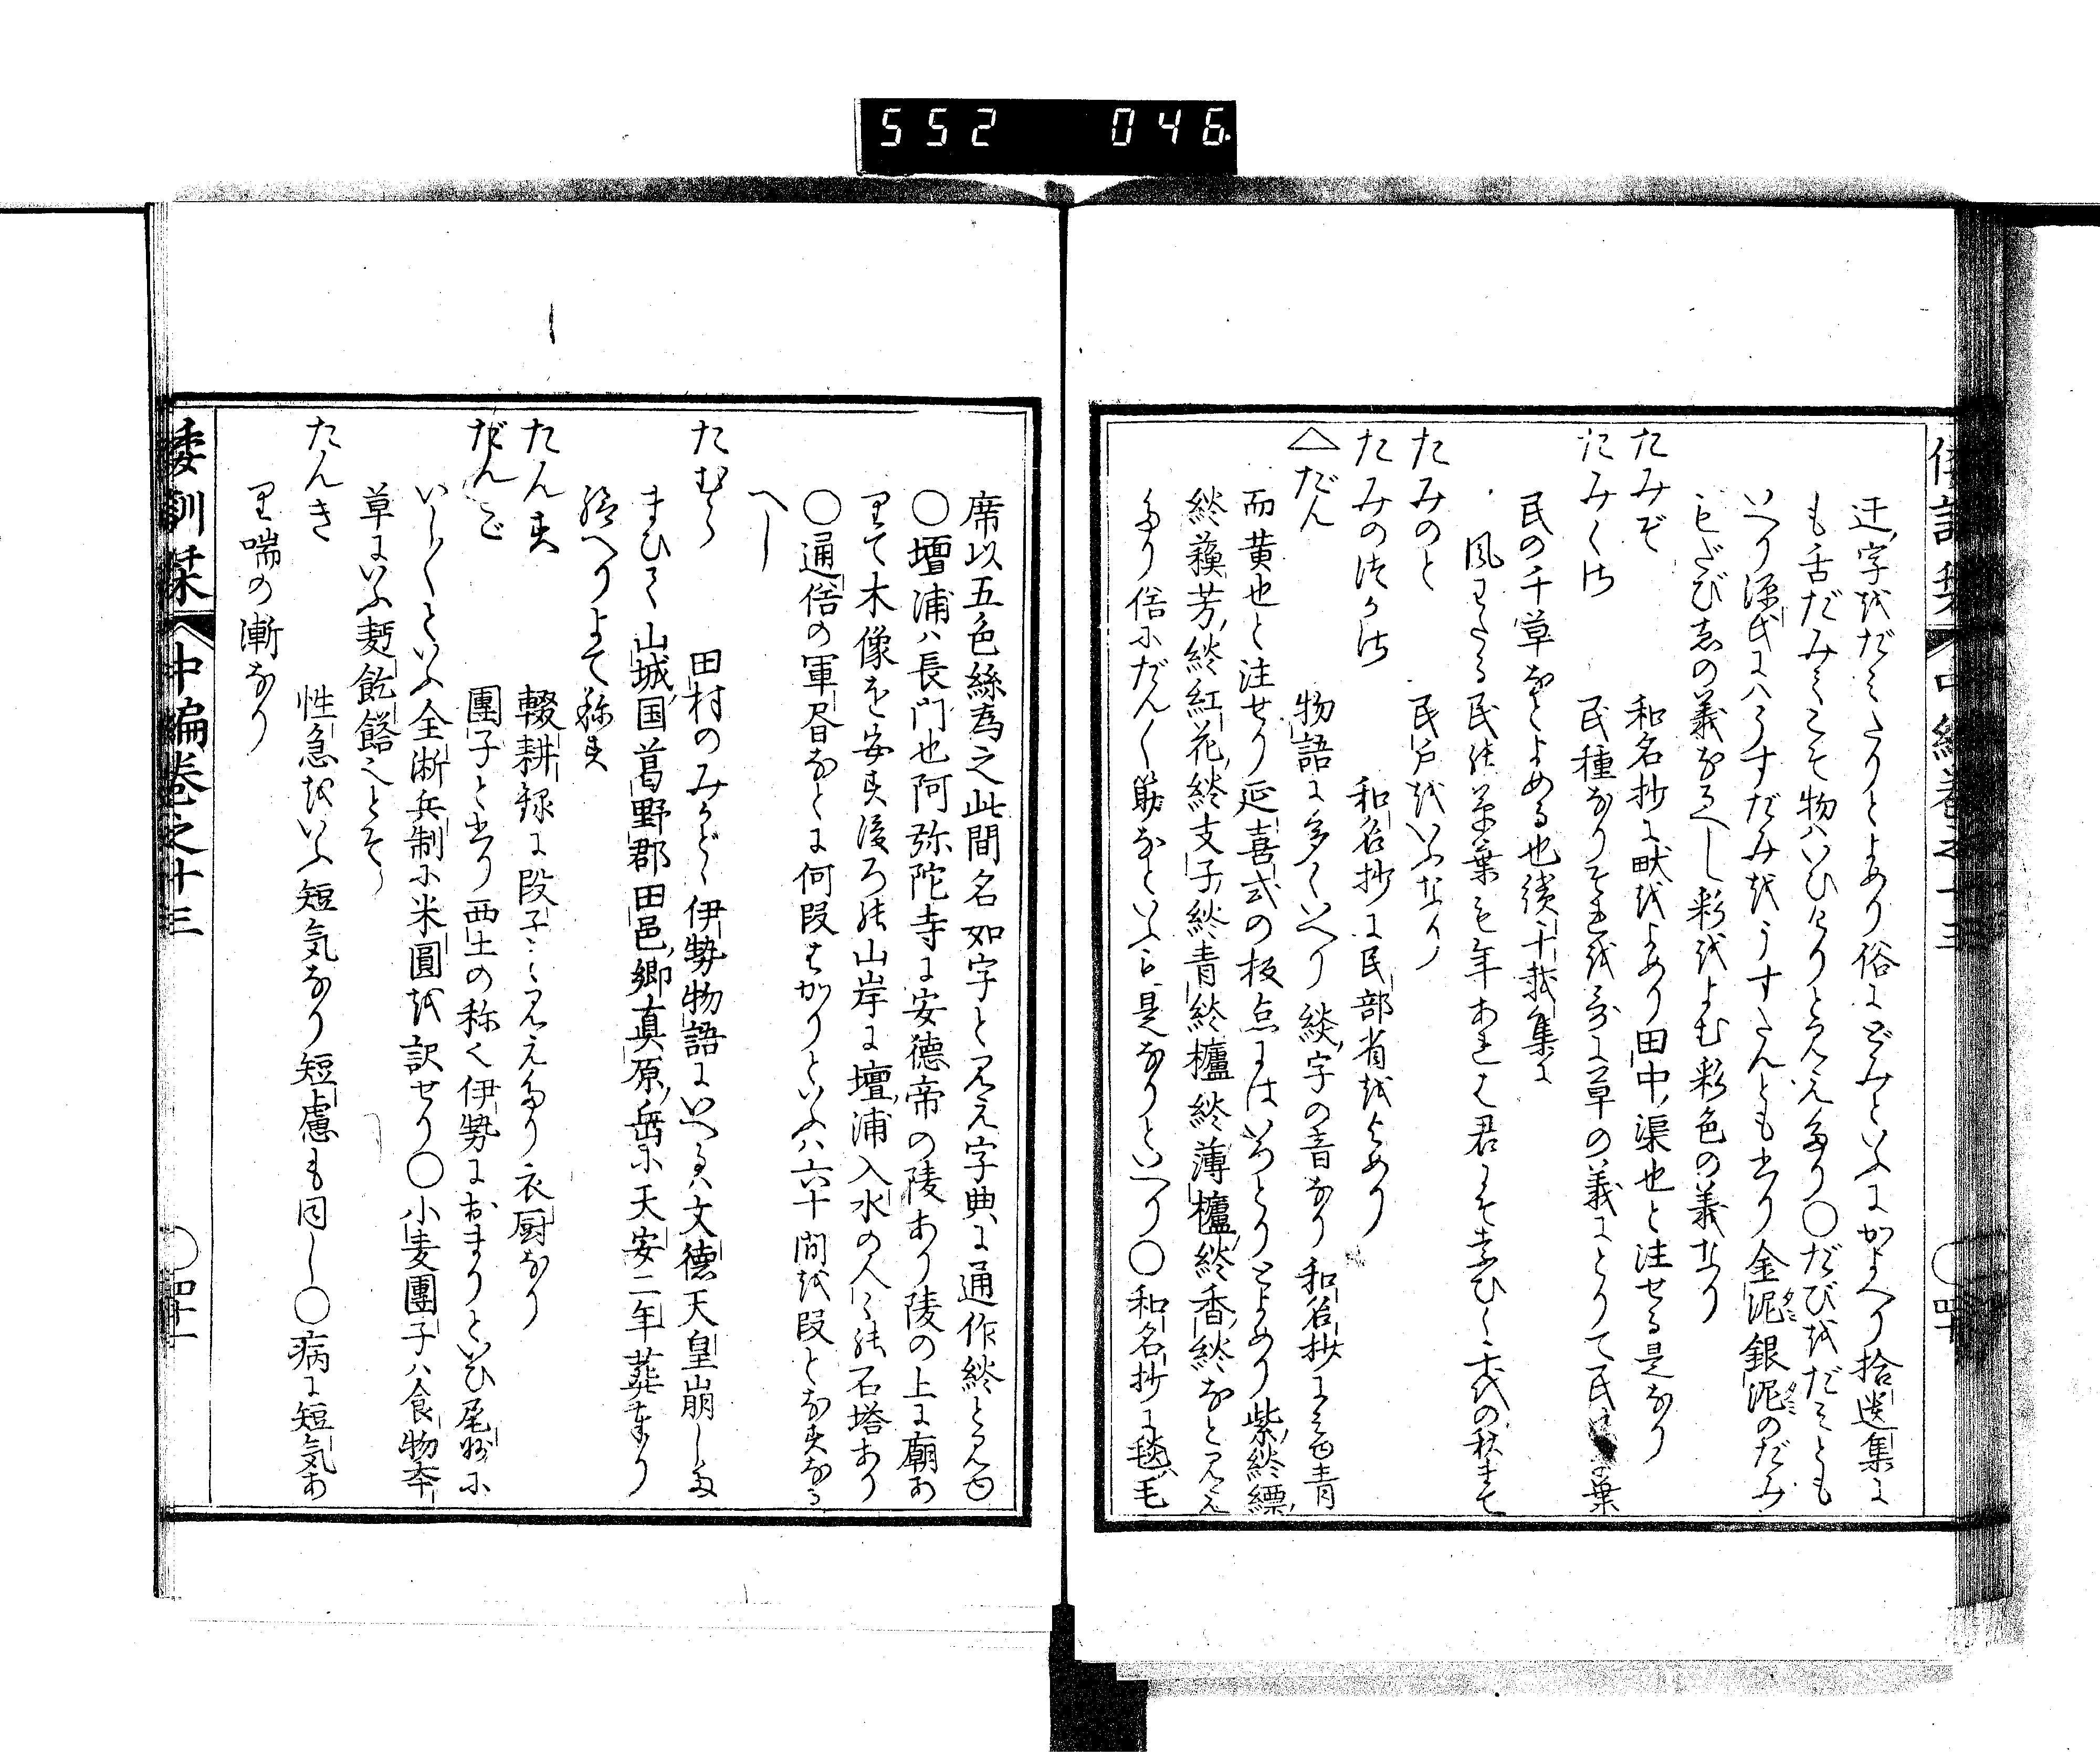 552 046
迂字をだミたりとよめり俗にどみといふにかよへり拾遺集に
も舌だみてこそ物はいひけりと見え〻たり〇だびをだミとも
いへり源氏にハうすだみをうすたんとも出り金泥銀泥のだみ
もだび志の義なるへし彩をよむ彩色の義なり
たみぞ 和名抄に畎をよめり田中渠也と注せる是なり
たみくさ 民種なりそれを草の義にとりて民の葉
民の千草なとよめる也後千載集に
風わたる民の草葉も年あれは君にそなひく千代の秋まて
たみのと 民戸をいふなり
たみのつかさ 和名抄に民部省をよめり
△だん 物語に多くいへり緂字の音なり和名抄に青
而黄也と注せり延喜式の板点にはいろとりとよめり紫緂縹
緂蘓芳緂紅花緂支子緂青緂櫨緂薄櫨緂香緂なと見え
たり俗にだん〱筋なといふも是なりといへり〇和名抄に毯毛
倭訓栞 中編巻之十三 〇四十
席以五色絲為之此間名如字と見え字典に通作緂と見ゆ
〇壇浦ハ長門也阿弥陀寺に安徳帝の陵あり陵の上に廟あ
りて木像を安す後ろの山岸に壇浦入水の人々の石塔あり
〇通俗の軍昏なとに何段はかりといふハ六十間を段となすなる
へし
たむら 田村のみかど伊勢物語にいへるハ文徳天皇崩した
まひて山城国葛野郡田邑郷真原岳に天安二年葬奉り
給へりよて称す
たんす 輟耕録に段子と見えたり衣厨なり
だんご 團子と出り西土の称也伊勢におまりといひ尾州に
いし〱といふ全浙兵制に米圓を訳せり〇小麦團子ハ食物本
草にいふ麪飥饀也とそ
たんき 性急をいふ短気なり短慮も同し〇病に短気あ
り喘の漸なり
倭訓栞 中編巻之十三 〇四十一